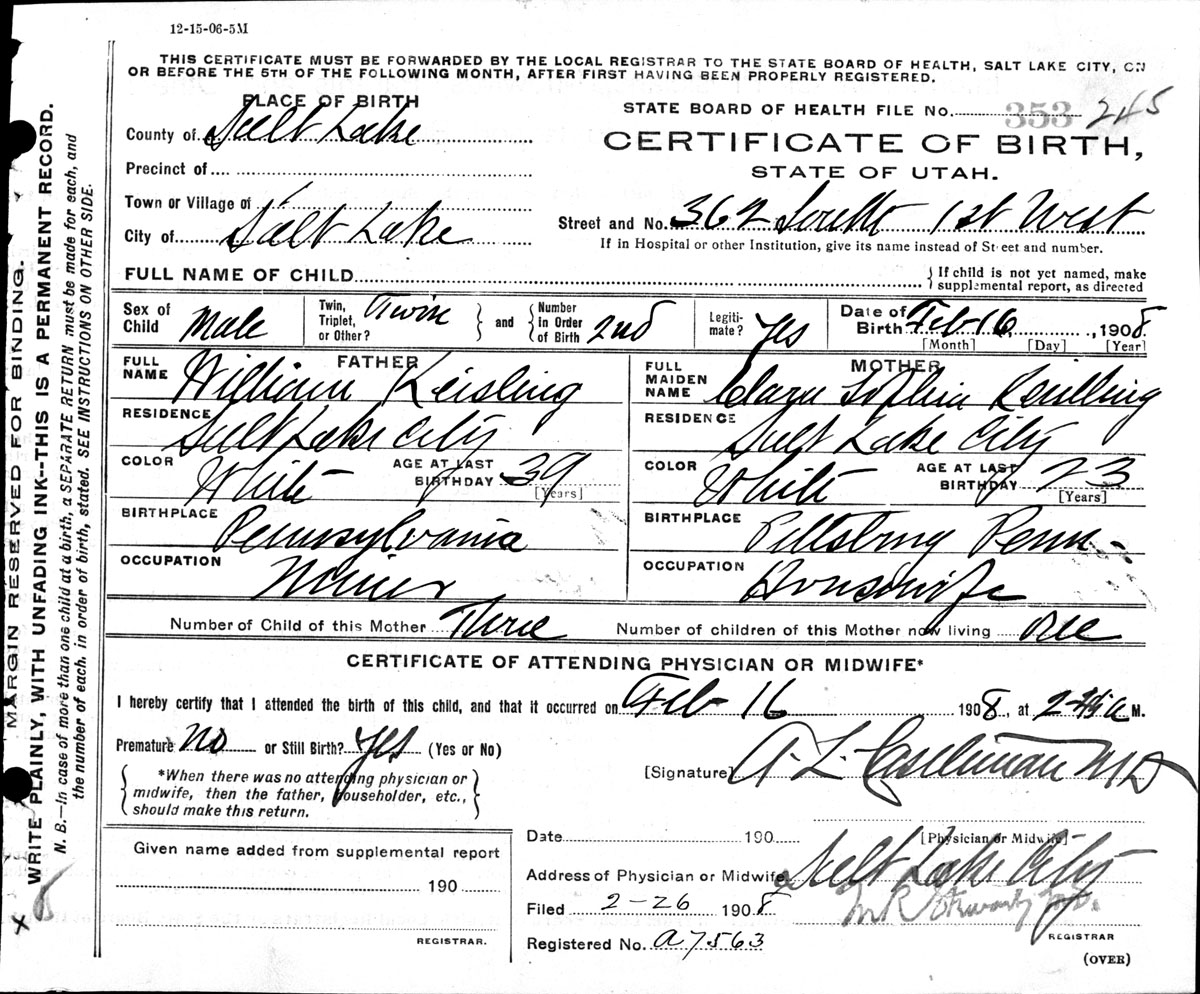 12-15-06-5M
THIS CERTIFICATE MUST BE FORWARDED BY THE LOCAL REGISTRAR TO THE STATE BOARD OF HEALTH, SALT LAKE CITY, ON
OR BEFORE THE 5TH OF THE FOLLOWING MONTH, AFTER FIRST HAVING BEEN PROPERLY REGISTERED.
PLACE OF BIRTH
County of Salt Lake
Precinct of
Town or Village of
City of Salt Lake
STATE BOARD OF HEALTH FILE No. 353 245
CERTIFICATE OF BIRTH,
STATE OF UTAH.
Street and No. 362 South 1st West
If in Hospital or other Institution, give its name instead of Street and number.
FULL NAME OF CHILD
If child is not yet named, make
supplemental report, as directed
Sex of Child Male
Twin, Triplet, or Other? Twin and Number in Order of Birth 2nd
Legiti-mate? Yes
Date of Birth Feb 16, 1908
[Month] [Day] [Year]
FATHER
FULL NAME William Keisling
RESIDENCE Salt Lake City
COLOR White AGE AT LAST BIRTHDAY 39
[Years]
BIRTHPLACE Pennsylvania
OCCUPATION
MOTHER
FULL MAIDEN NAME Clara Sophia
RESIDENCE Salt Lake City
COLOR White AGE AT LAST BIRTHDAY 23
[Years]
BIRTHPLACE Pittsburg Penn-
OCCUPATION Housewife
Number of Child of this Mother Three Number of children of this Mother now living One
CERTIFICATE OF ATTENDING PHYSICIAN OR MIDWIFE*
I hereby certify that I attended the birth of this child, and that it occurred on Feb 16 1908, at 2-45 a M.
Premature No or Still Birth? Yes (Yes or No)
*When there was no attending physician or
midwife, then the father, householder, etc.,
should make this return.
[Signature] A. L. Castleman MD
[Physician or Midwife]
Given name added from supplemental report
190
REGISTRAR.
Date 190
Address of Physician or Midwife Salt Lake City
Filed 2-26 1908
M.D.
REGISTRAR
Registered No. A7563
(OVER)
MARGIN RESERVED FOR BINDING.
WRITE PLAINLY, WITH UNFADING INK--THIS IS A PERMANENT RECORD.
N. B.—In case of more than one child at a birth, a SEPARATE RETURN must be made for each, and
the number of each, in order of birth, stated. SEE INSTRUCTIONS ON OTHER SIDE.